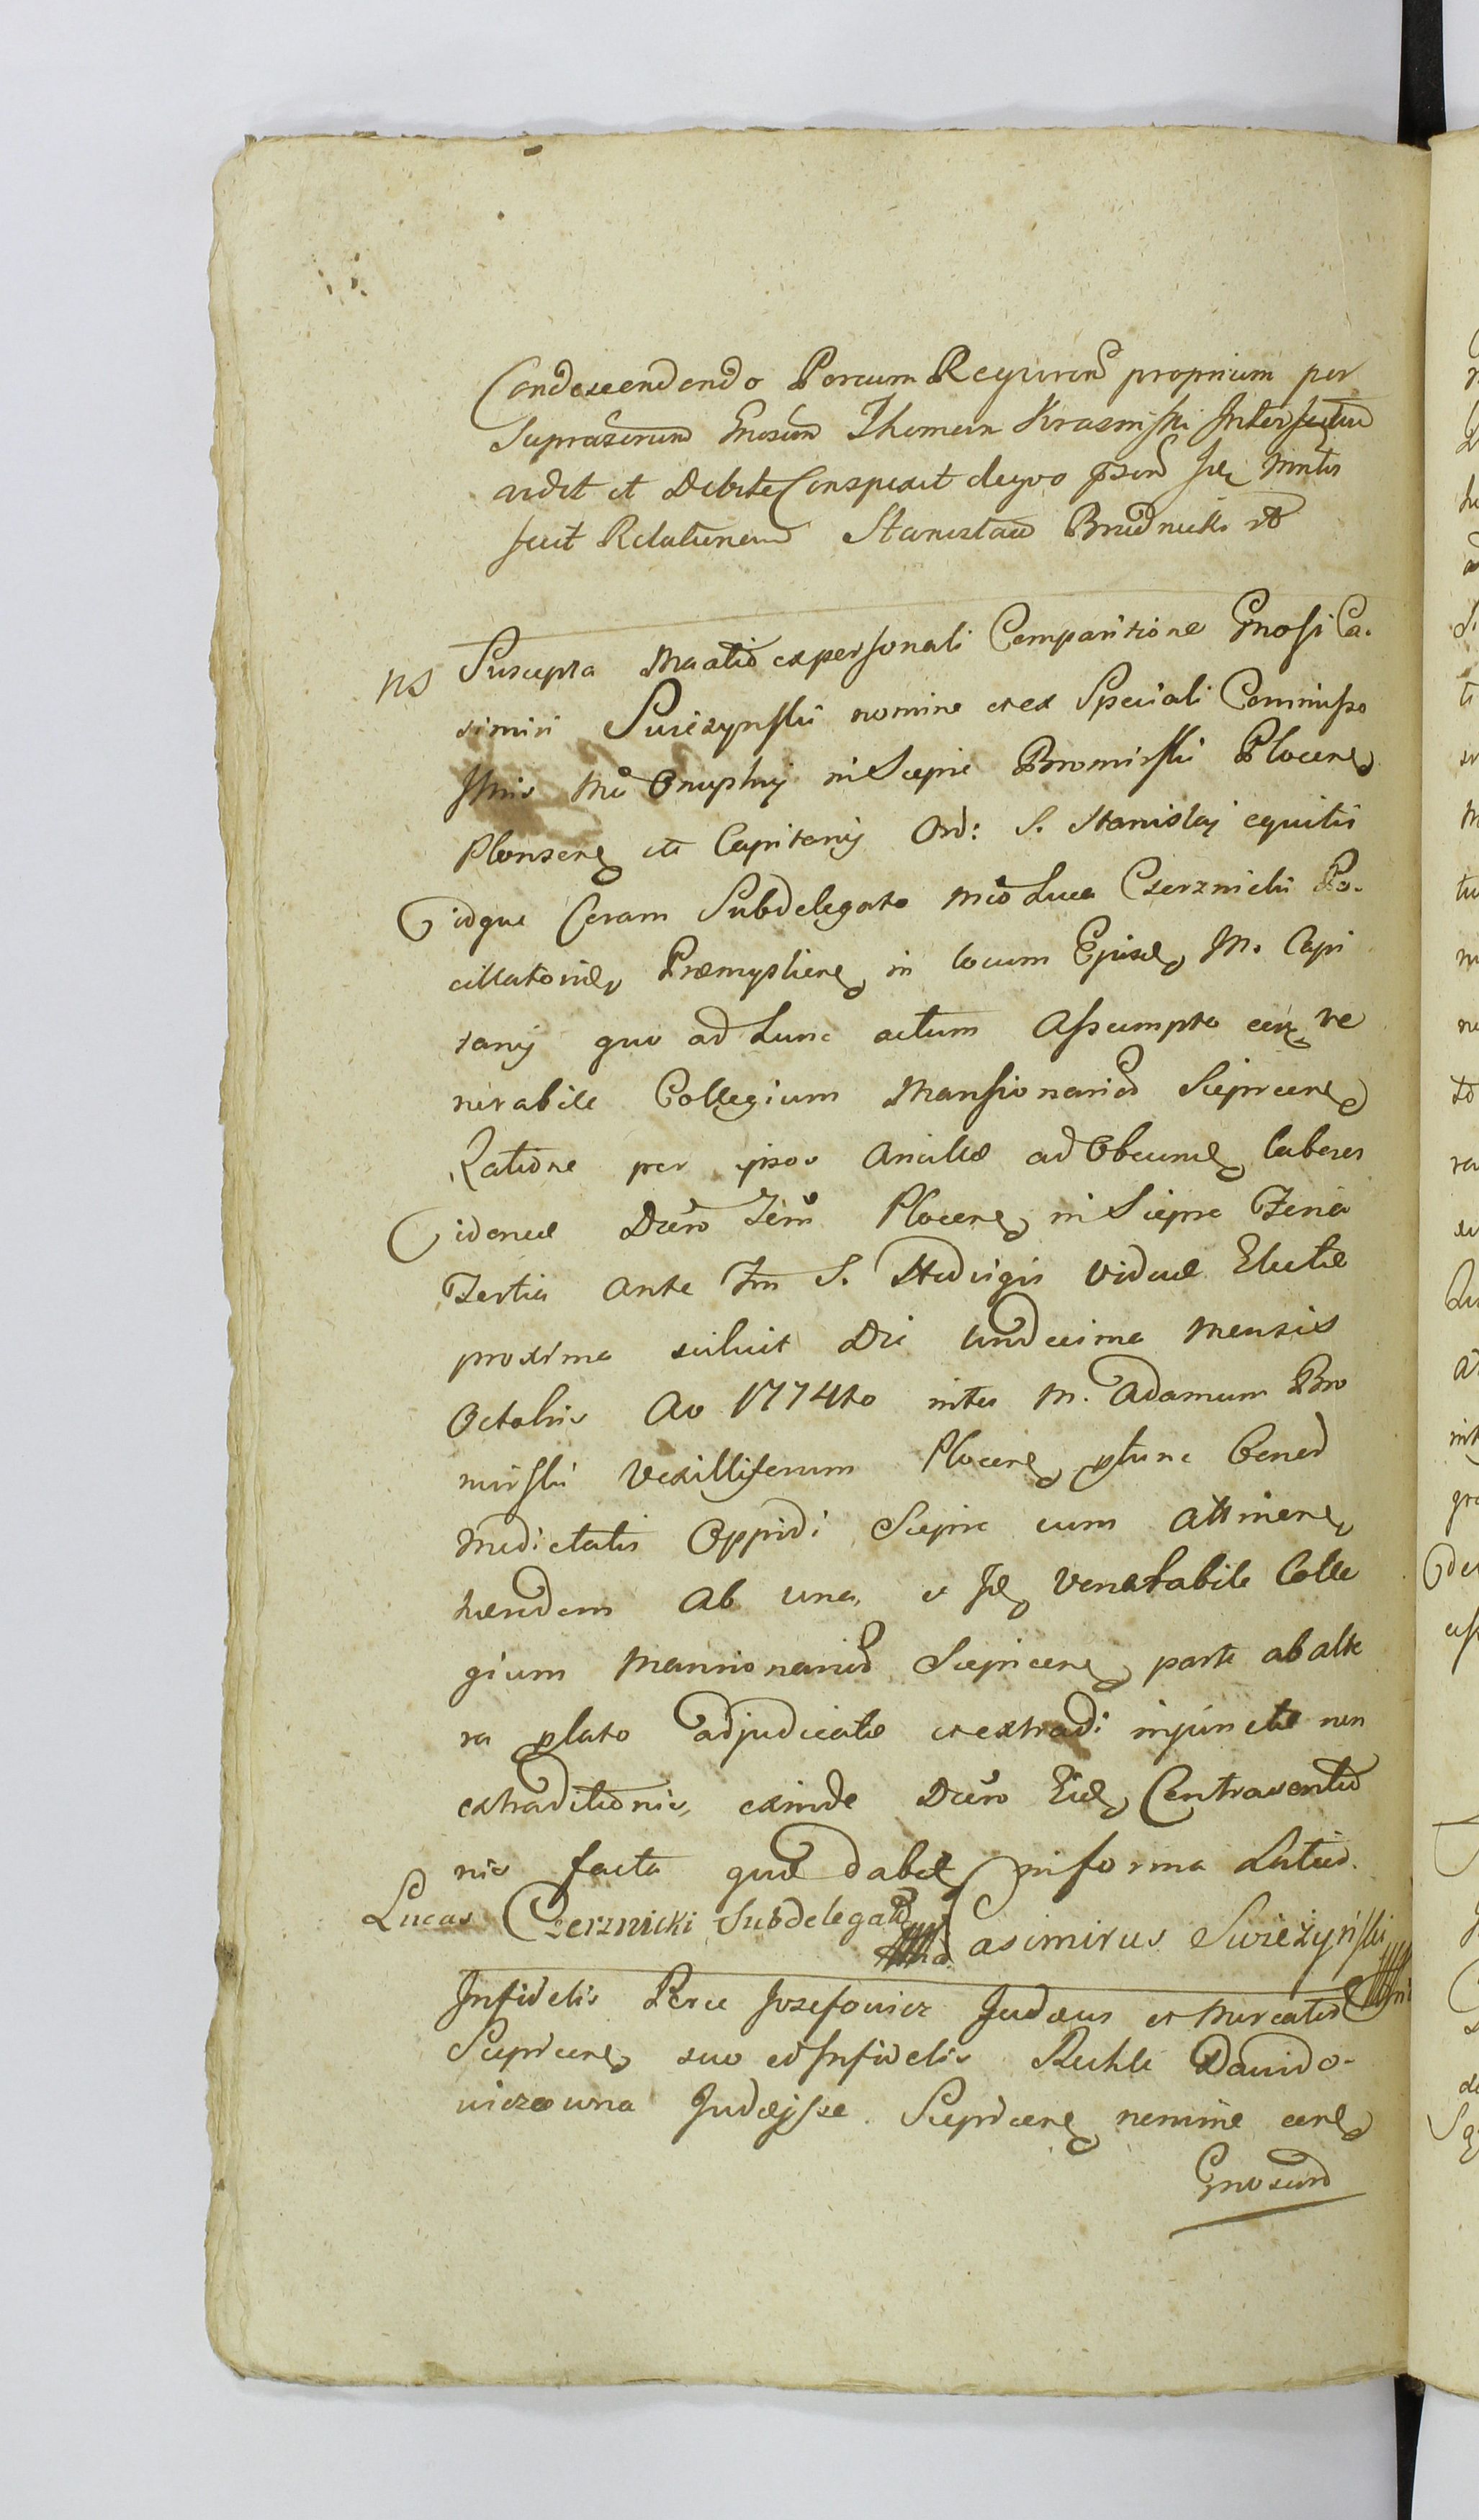 Condescendendo Porcum Requiren proprium per
Suprascrum Gnosum Thomam Krasniski Interfectum
vidit et Debite Conspexit de quo psen Jud Mntr
fecit Relationem Stanislaus Brudnicki
ns Suscepta Maatio ex personali Comparitione Gnosi Ca-
simiri Swiezynski nomine et ex Speciali Commisso
Mci Onuphry in Sieprc Bromirski Plocen
Plonscen etc Capitanj Ord: S. Stanislaj equitis
idque Coram Subdelegato Mco Luca Czerznicki Po-
cillatorid Præmyslien in locum Ejusd M. Capi
tanj quo ad hunc actum Assumpto ve
nerabile Collegium Mansionarior Sieprcen
Ratione per ipsos Ancillæ ad Obeund labores
idoneæ Decro Plocen in Sieprc Feria
Tertia Ante Fm S. Hedvigis Viduæ Electæ
proxima scilicet Die undecima Mensis
Octobris Ao 1774to inter M. Adamum Bro
mirski Vexilliferum Plocen ptunc bonor
Medietatis Oppidi Sieprc cum attinen
hæredem Ab una, et Venerabile Colle
gium Mansionarior Sieprcen parte ab alte
ra plato adjudicatæ et extradi injunctæ non
extraditionis, exinde Decro Eid Contraventio
nis facta quæ dabit in forma Latius.
Lucas Czerznicki Subdelegatus Casimirus Swieżyński
Infidelis Berc Jozefowicz Judæus et Mercator
Sieprcen suo et Infidelis Ruchli Dawido-
wiczowna Judæjsse Sieprcen nomine coram
Gnosum